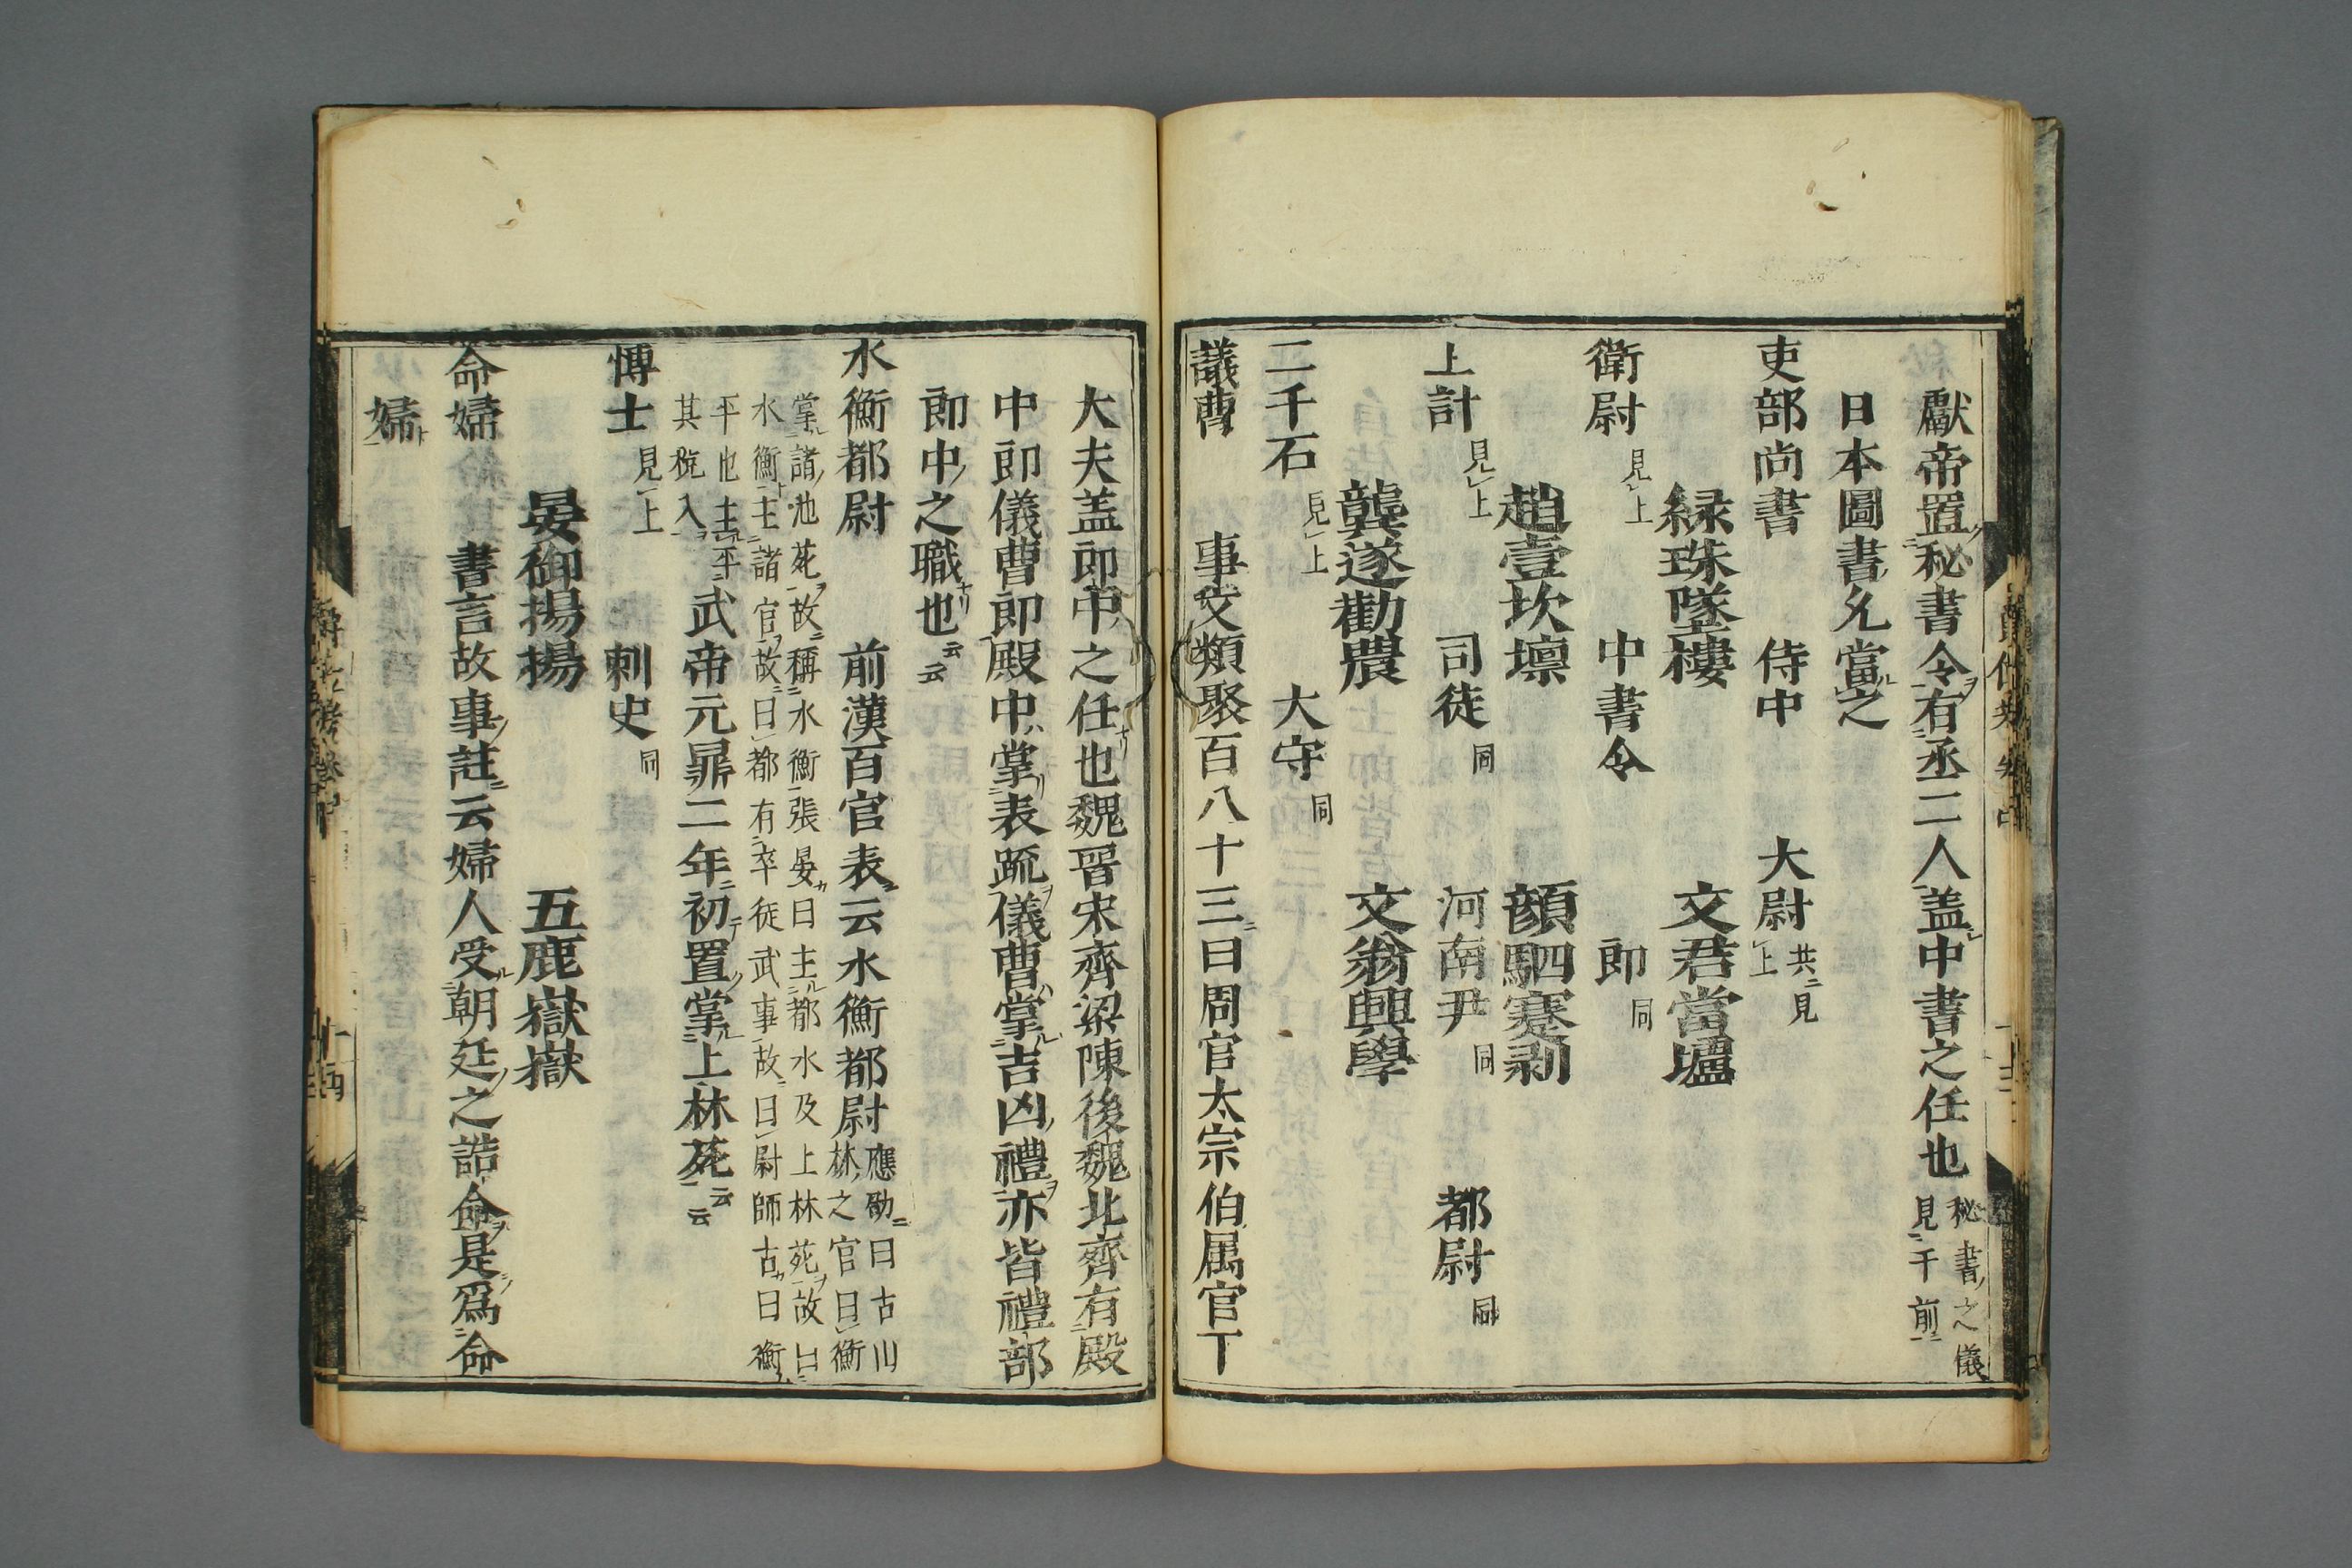 獻帝置秘書令有丞二人盖中書之任也秘書之儀見于前
日本圖書允當之
吏部尚書 侍中 大尉共見上
緑珠墜樓 文君當壚
衛尉見上 中書令 郎同
趙壹坎壈 顔駟蹇剥
上計見上 司徒同 河南尹同 都尉同
龔遂勸農 文翁興學
二千石見上 大守同
議曹 事文類聚百八十三曰周官太宗伯属官下
大夫盖郎中之任也魏晋宋齊梁陳後魏北齊有殿
中郎儀曹郎殿中掌表疏儀曹掌吉凶禮亦皆禮部
郎中之職也云云
水衡都尉 前漢百官表云水衡都尉應劭曰古山林之官曰衡
掌諸池苑故稱水衡張晏曰主都水及上林苑故曰水衡主諸官故曰都有卒徒武事故曰尉師古曰衡
平也主平其税入武帝元鼎二年初置掌上林苑云云
博士見上 刺史同
晏御揚揚 五鹿嶽嶽
命婦 書言故事註云婦人受朝廷之誥命是爲命
婦